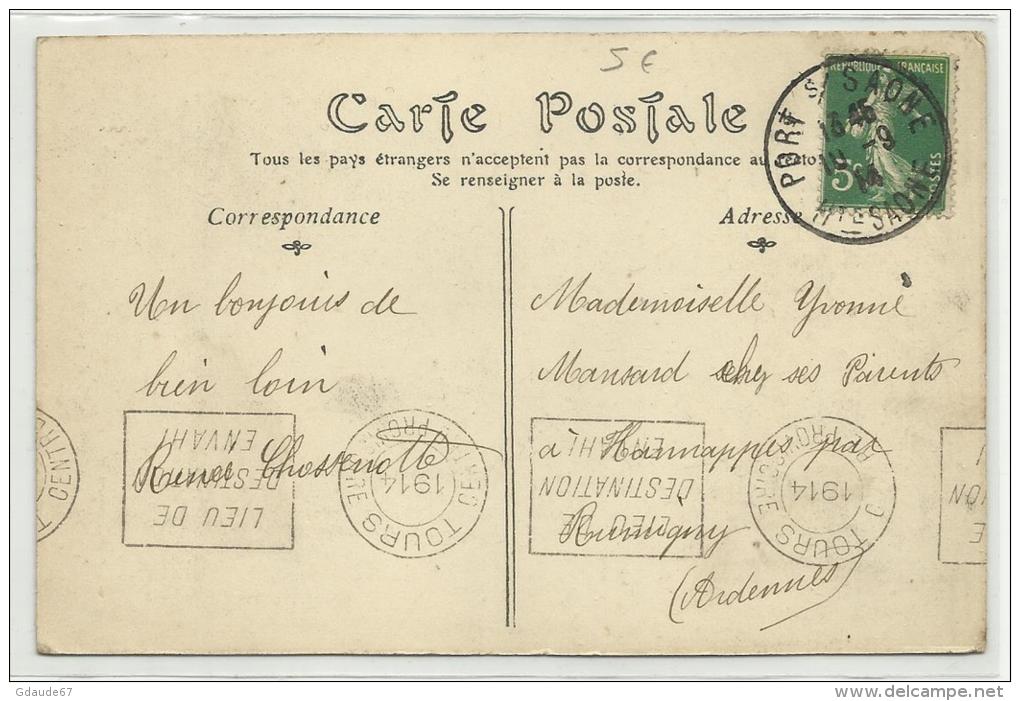 5 €
Carte Postale
Tous les pays étrangers n'acceptent pas la correspondance au
Se renseigner à la poste.
Correspondance
Adresse
RÉPUBLIQUE FRANÇAISE
5c
PORT S/ SAONE
18 45
10 -9
14
HTE SAONE
Un bonjours de
bien loin
Mademoiselle Yvonne
Mansard chez ses Parents
à Hannappes par
Rumigny
(Ardennes)
LIEU DE
DESTINATION
ENVAHI
TOURS
1914
LIEU DE
DESTINATION
ENVAHI
TOURS
1914
CENTR
Gdaude67
www.delcampe.net